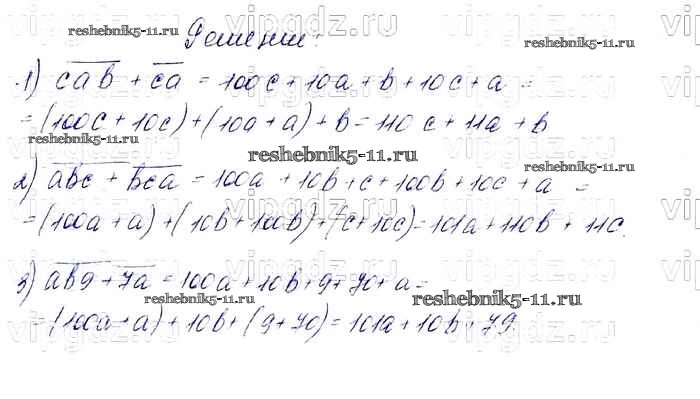 Решение:
1) cab + ca = 100c + 10a + b + 10c + a =
= (100c + 10c) + (10a + a) + b = 110c + 11a + b
2) abc + bca = 100a + 10b + c + 100b + 10c + a =
= (100a + a) + (10b + 100b) + (c + 10c) = 101a + 110b + 11c.
3) ab9 + 7a = 100a + 10b + 9 + 70 + a =
= (100a + a) + 10b + (9 + 70) = 101a + 10b + 79.
reshebnik5-11.ru
reshebnik5-11.ru
reshebnik5-11.ru
reshebnik5-11.ru
reshebnik5-11.ru
reshebnik5-11.ru
reshebnik5-11.ru
vipgdz.ru
vipgdz.ru
vipgdz.ru